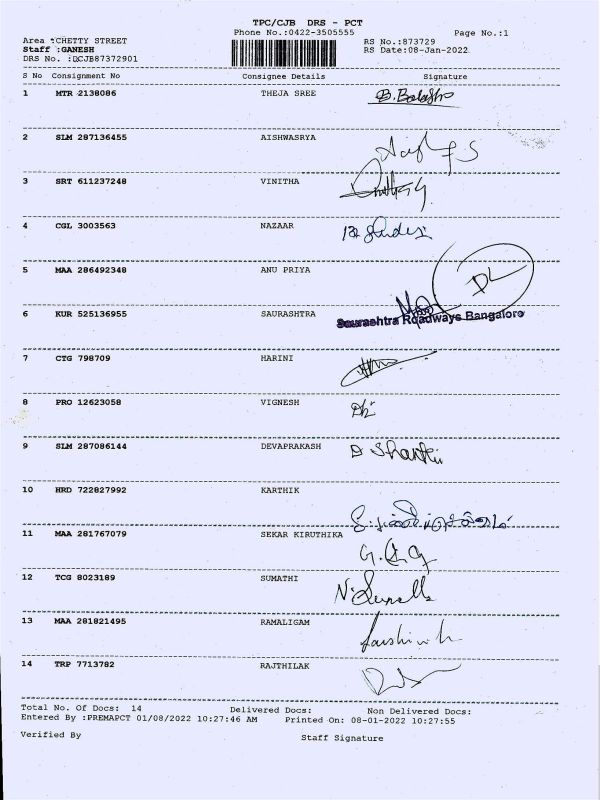 TPC/CJB DRS - PCT
Phone No.:0422-3505555 Page No.:1
Area :CHETTY STREET RS No.:873729
Staff :GANESH RS Date:08-Jan-2022
DRS No. :DCJB87372901
S No Consignment No Consignee Details Signature
1 MTR 2138086 THEJA SREE
2 SLM 287136455 AISHWASRYA
3 SRT 611237248 VINITHA
4 CGL 3003563 NAZAAR
5 MAA 286492348 ANU PRIYA
DL
6 KUR 525136955 SAURASHTRA Saurashtra Roadways Bangalore
7 CTG 798709 HARINI
8 PRO 12623058 VIGNESH
9 SLM 287086144 DEVAPRAKASH D Shanthi
10 HRD 722827992 KARTHIK
11 MAA 281767079 SEKAR KIRUTHIKA
12 TCG 8023189 SUMATHI
13 MAA 281821495 RAMALIGAM
14 TRP 7713782 RAJTHILAK
Total No. Of Docs: 14 Delivered Docs: Non Delivered Docs:
Entered By :PREMAPCT 01/08/2022 10:27:46 AM Printed On: 08-01-2022 10:27:55
Verified By Staff Signature